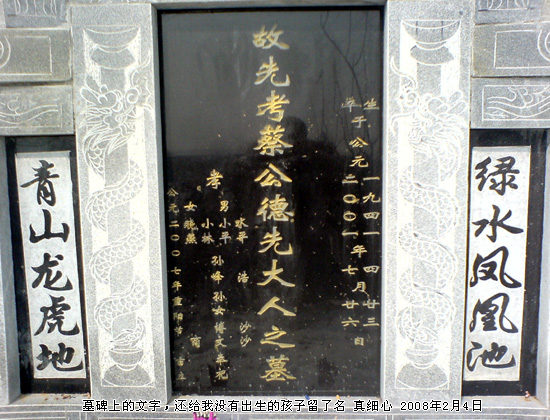 绿水凤凰池
生
卒于公元
一九四一 四 廿三
二〇〇一年七月廿六日
故先考蔡公德先大人之墓
孝
男 小平 小林
女 晓燕
孙 峰
浩
孙女
沙沙
公元二〇〇七年重阳节
青山龙虎地
墓碑上的文字，还给我没有出生的孩子留了名 真细心 2008年2月4日